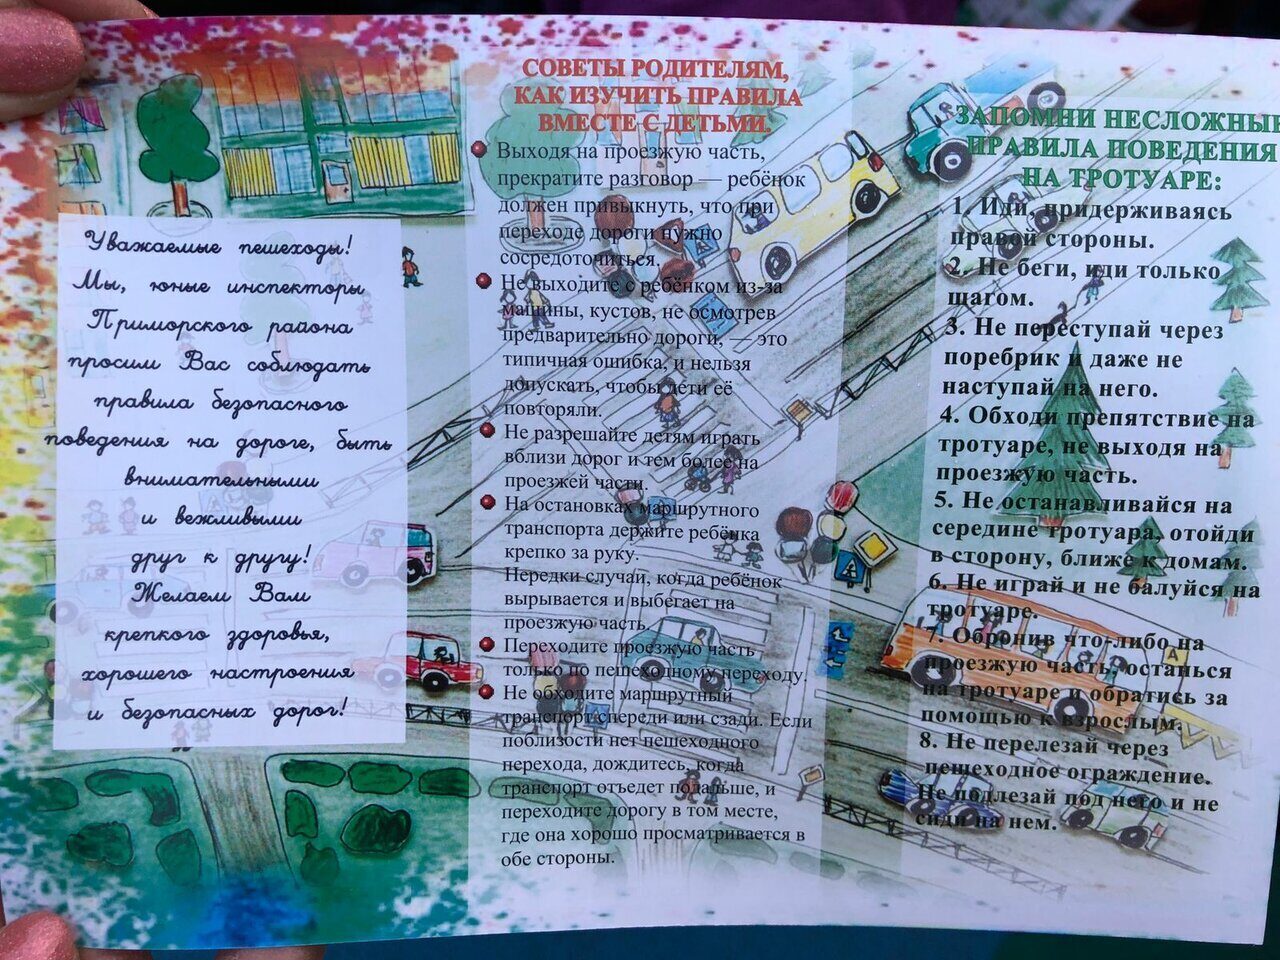 Уважаемые пешеходы!
Мы, юные инспекторы
Приморского района
просим Вас соблюдать
правила безопасного
поведения на дороге, быть
внимательными
и вежливыми
друг к другу!
Желаем Вам
крепкого здоровья,
хорошего настроения
и безопасных дорог!
СОВЕТЫ РОДИТЕЛЯМ,
КАК ИЗУЧИТЬ ПРАВИЛА
ВМЕСТЕ С ДЕТЬМИ.
Выходя на проезжую часть,
прекратите разговор — ребёнок
должен привыкнуть, что при
переходе дороги нужно
сосредоточиться.
Не выходите с ребёнком из-за
машины, кустов, не осмотрев
предварительно дороги, — это
типичная ошибка, и нельзя
допускать, чтобы дети её
повторяли.
Не разрешайте детям играть
вблизи дорог и тем более на
проезжей части.
На остановках маршрутного
транспорта держите ребёнка
крепко за руку.
Нередки случаи, когда ребёнок
вырывается и выбегает на
проезжую часть.
Переходите проезжую часть
только по пешеходному переходу.
Не обходите маршрутный
транспорт спереди или сзади. Если
поблизости нет пешеходного
перехода, дождитесь, когда
транспорт отъедет подальше, и
переходите дорогу в том месте,
где она хорошо просматривается в
обе стороны.
ЗАПОМНИ НЕСЛОЖНЫЕ
ПРАВИЛА ПОВЕДЕНИЯ
НА ТРОТУАРЕ:
1. Иди, придерживаясь
правой стороны.
2. Не беги, иди только
шагом.
3. Не переступай через
поребрик и даже не
наступай на него.
4. Обходи препятствие на
тротуаре, не выходя на
проезжую часть.
5. Не останавливайся на
середине тротуара, отойди
в сторону, ближе к домам.
6. Не играй и не балуйся на
тротуаре.
7. Обронив что-либо на
проезжую часть, останься
на тротуаре и обратись за
помощью к взрослым.
8. Не перелезай через
пешеходное ограждение.
Не подлезай под него и не
сиди на нем.